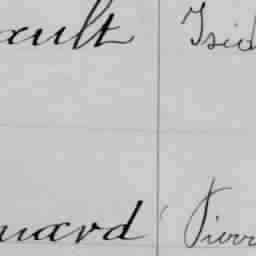 ault Isid
nard Pierr